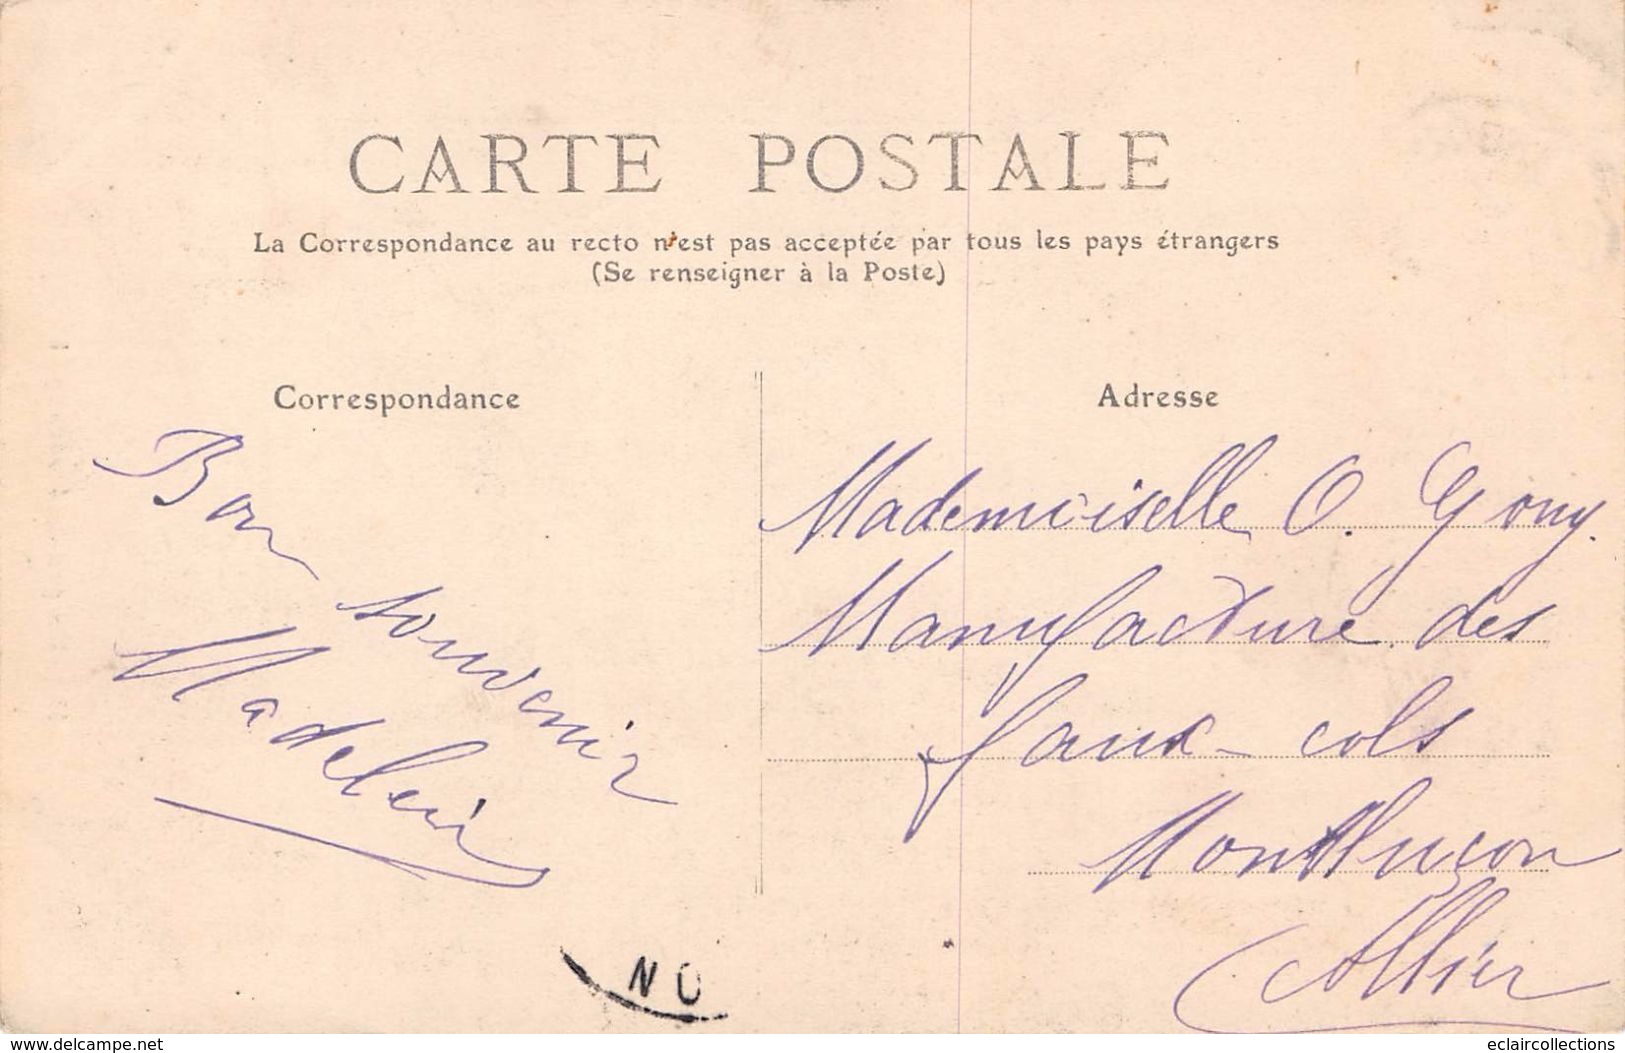 CARTE POSTALE
La Correspondance au recto n'est pas acceptée par tous les pays étrangers
(Se renseigner à la Poste)
Correspondance
Adresse
Bon souvenir
Madeleine
Mademoiselle O. Gony.
Manufacture des
faux-cols
Montluçon
Allier
www.delcampe.net
eclaircollections